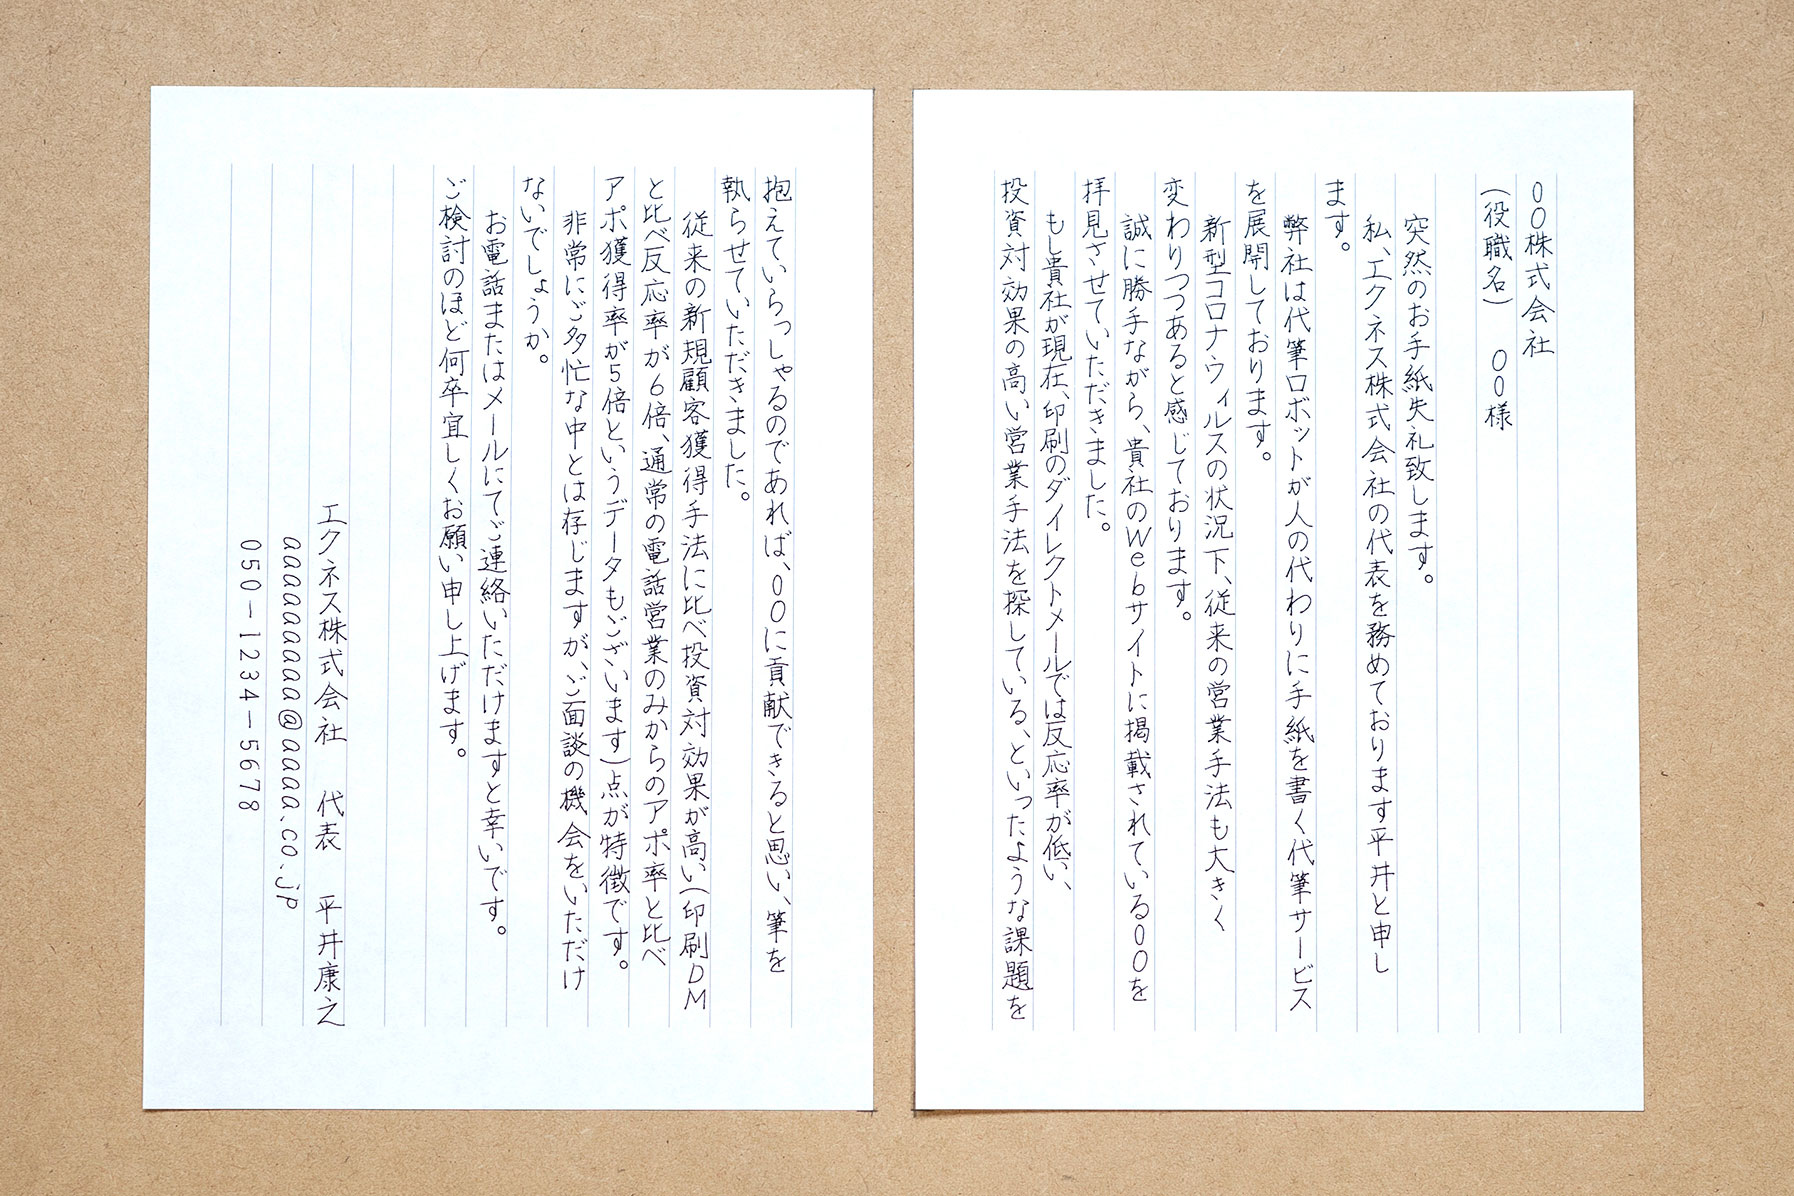 〇〇株式会社
(役職名) 〇〇様
突然のお手紙失礼致します。
私、エクネス株式会社の代表を務めております平井と申し
ます。
弊社は代筆ロボットが人の代わりに手紙を書く代筆サービス
を展開しております。
新型コロナウィルスの状況下、従来の営業手法も大きく
変わりつつあると感じております。
誠に勝手ながら、貴社のWebサイトに掲載されている〇〇を
拝見させていただきました。
もし貴社が現在、印刷のダイレクトメールでは反応率が低い、
投資対効果の高い営業手法を探している、といったような課題を
抱えていらっしゃるのであれば、〇〇に貢献できると思い、筆を
執らせていただきました。
従来の新規顧客獲得手法に比べ投資対効果が高い(印刷DM
と比べ反応率が6倍、通常の電話営業のみからのアポ率と比べ
アポ獲得率が5倍というデータもございます)点が特徴です。
非常にご多忙な中とは存じますが、ご面談の機会をいただけ
ないでしょうか。
お電話またはメールにてご連絡いただけますと幸いです。
ご検討のほど何卒宜しくお願い申し上げます。
エクネス株式会社 代表 平井康之
aaaaaaaaa@aaaa.co.jp
050-1234-5678